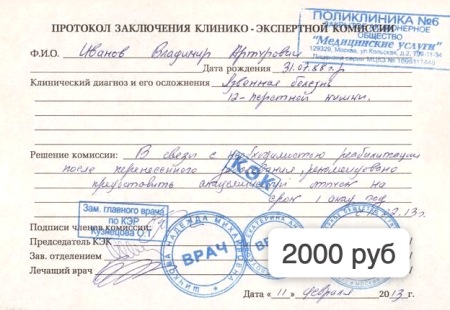 ПРОТОКОЛ ЗАКЛЮЧЕНИЯ КЛИНИКО - ЭКСПЕРТНОЙ КОМИССИИ
ПОЛИКЛИНИКА №6
ОБЩЕСТВО
"Медицинские услуги"
Ф.И.О. Иванов Владимир Артурович
Дата рождения 31.07.88 г.р
Клинический диагноз и его осложнения Язвенная болезнь
12-перстной кишки.
Решение комиссии: В связи с необходимостью реабилитации
после перенесенного рекомендовано
предоставить академический отпуск на
срок 1 акад год
КЭК
02.13г
Зам. главного врача
по КЭР
Кузнецова О.Т
Подписи членов комиссии:
Председатель КЭК
Зав. отделением
Лечащий врач
ВРАЧ
2000 руб
Дата « 11 » февраля 2013 г.